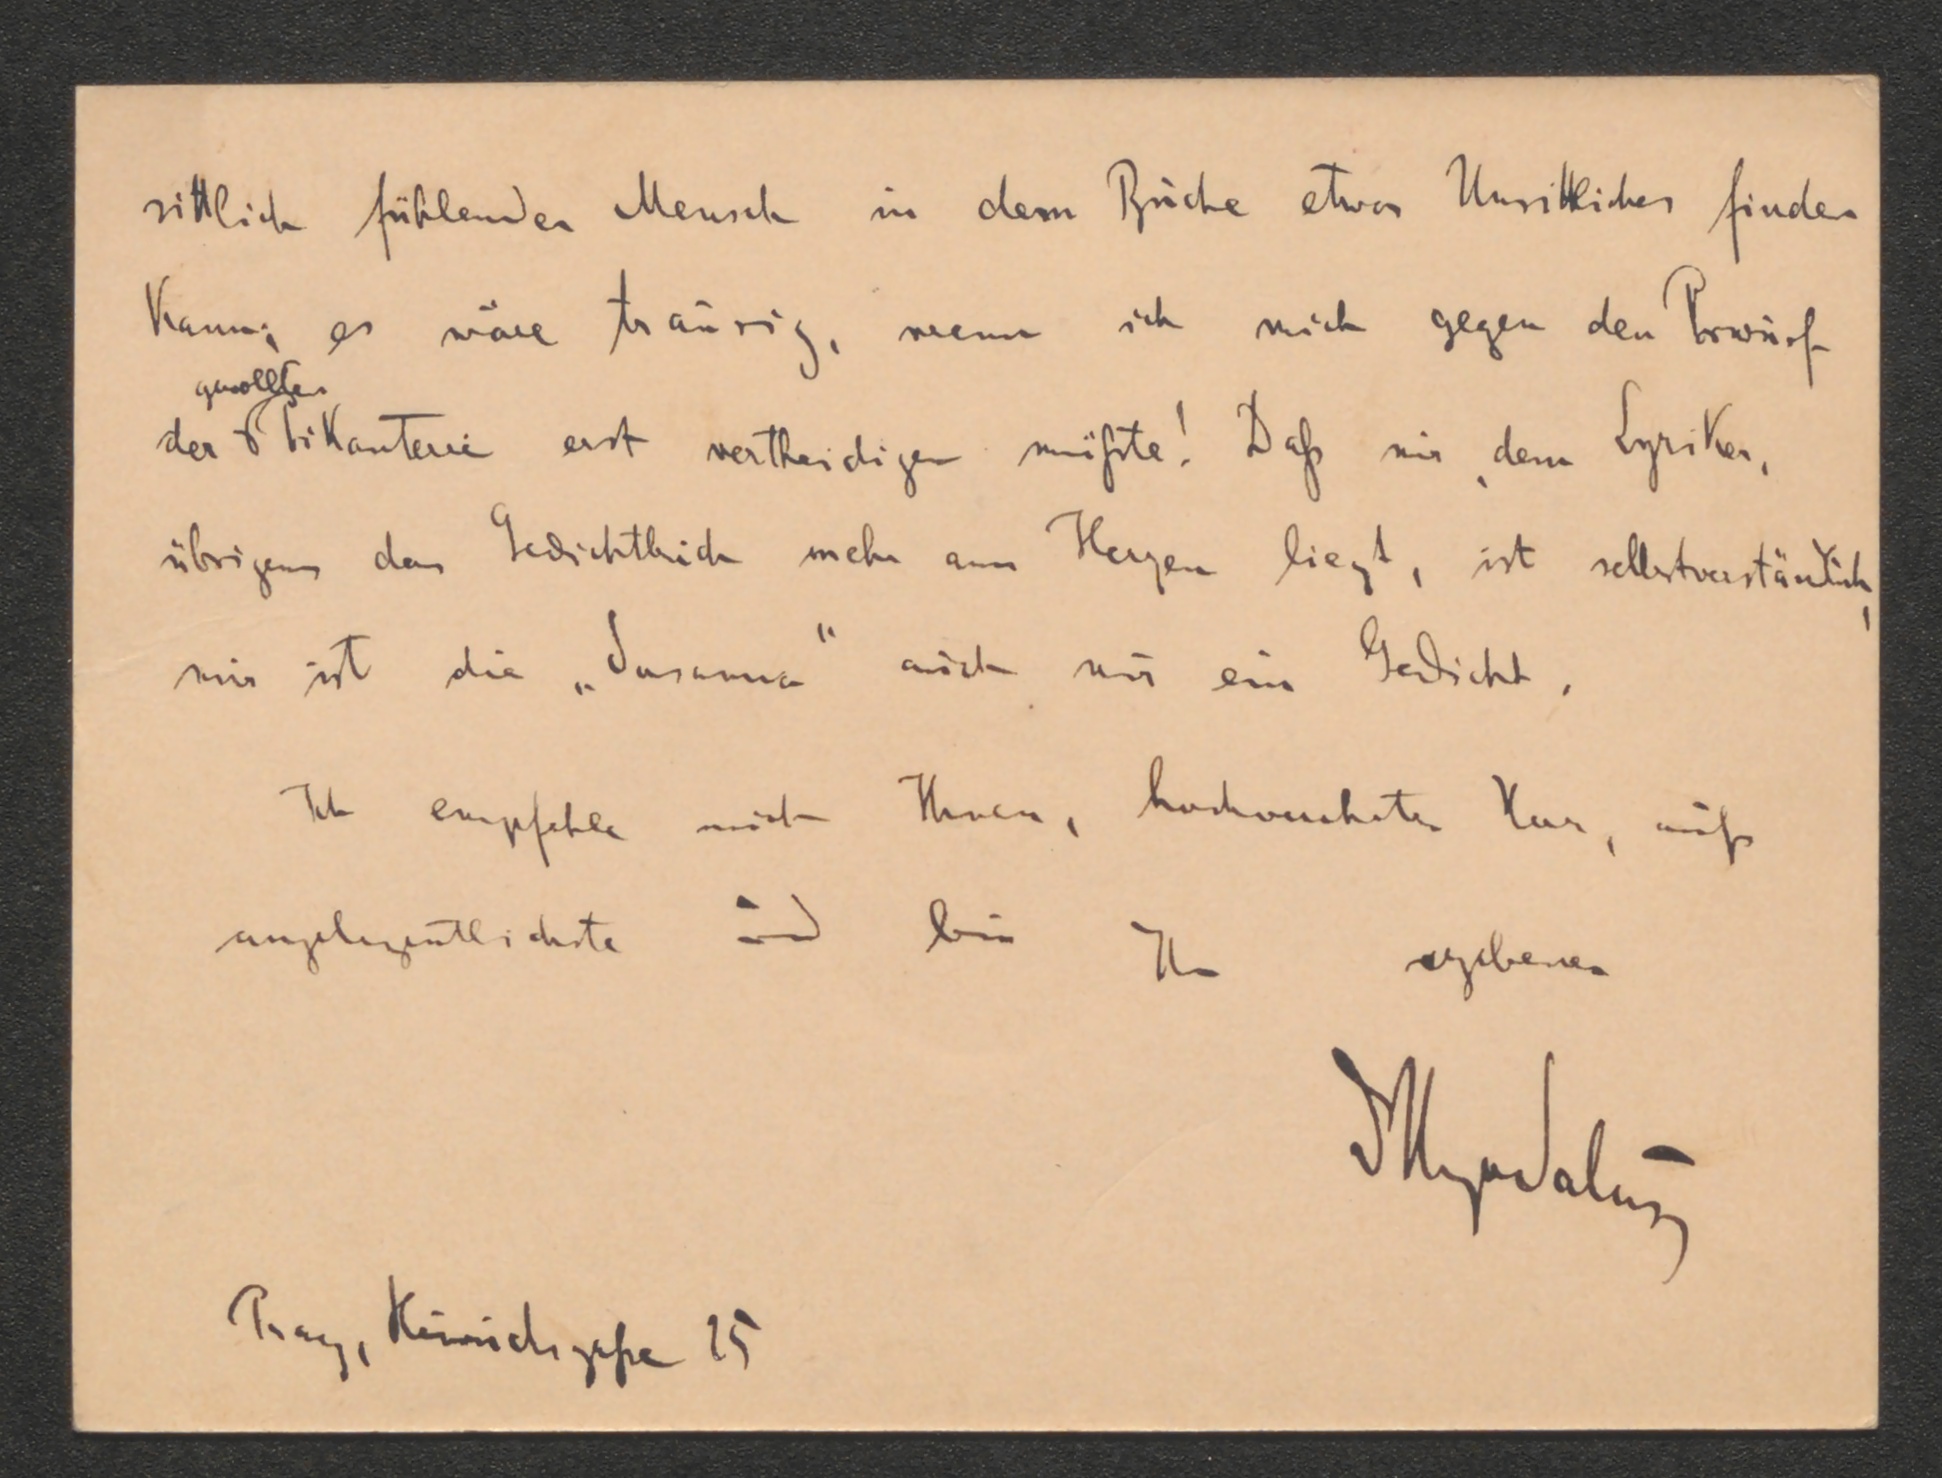 sittlich fühlender Mensch in dem Buche etwas Unsittliches finden
kann; es wäre traurig, wenn ich mich gegen den Vorwurf
gewollter
der Pikanterie erst vertheidigen müßte! Daß mir, dem Lyriker,
übrigens das Gedichtbuch mehr am Herzen liegt, ist selbstverständlich,
mir ist die „Susanna“ auch nur ein Gedicht.
Ich empfehle mich Ihnen, hochverehrter Herr, aufs
angelegentlichste und bin Ihr ergebener
Prag, Heinrichsgaße 25